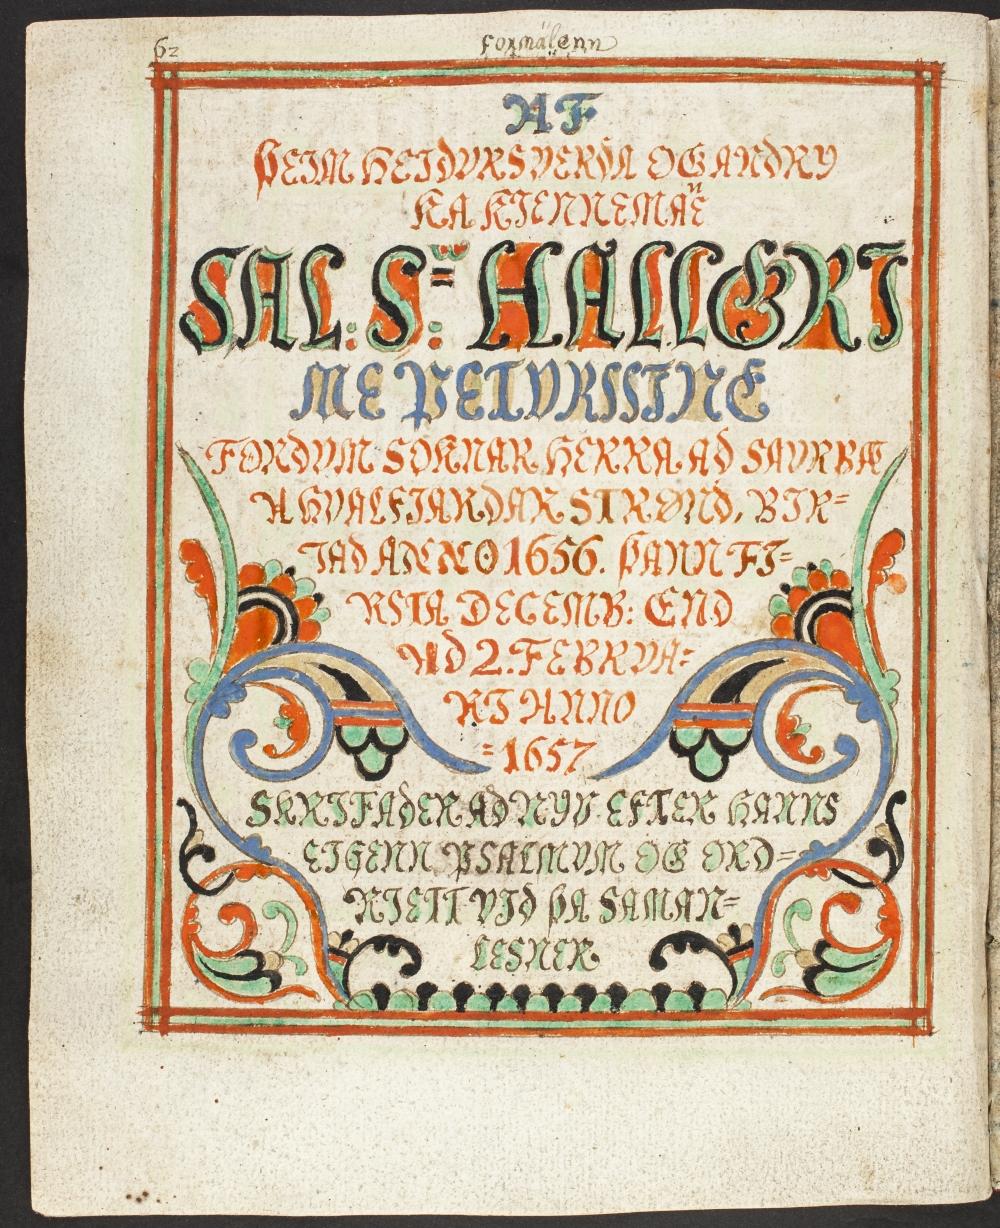 62 formälenn
AF
ÞEIM HEIDVRSVERDA OG ANDRY
KA KIENNEMAÑE
SAL: S:r HALLGRI
ME PETVRSSINE
FORDVM SOKNAR HERRA AD SAVRBÆ
A HVALFIARDAR STRØND, BIR=
IAD ANNO 1656. ÞANN FI=
RSTA DECEMB: END
AD 2. FEBRVA=
RI ANNO
=1657
SKRIFADER AD NYV EFTER HANNS
EIGENN PSALMVM OG ORD=
RIETT VID ÞA SAMAN=
LESNER